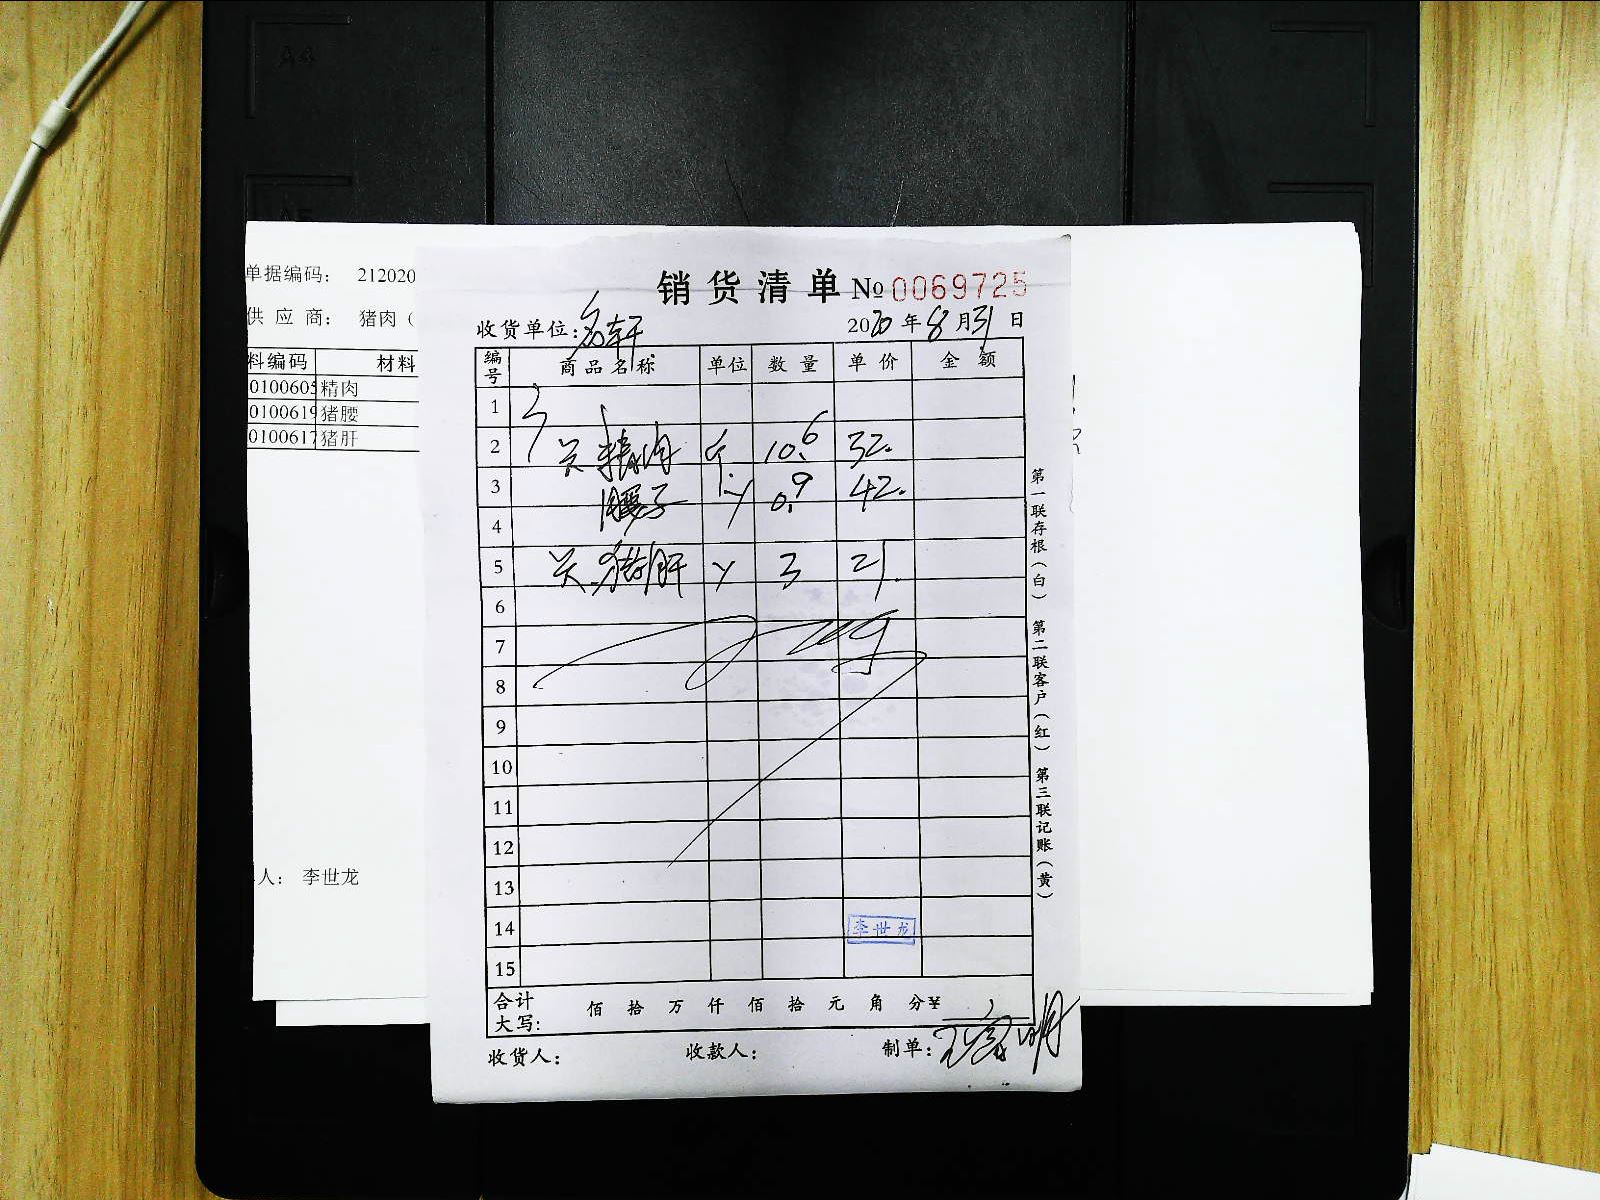 A4
A5
单据编码： 212020
供 应 商： 猪肉（
料编码 材料
0100605 精肉
0100619 猪腰
0100617 猪肝
人： 李世龙
销货清单 № 0069725
收货单位：名轩 2020年8月31日
编号 商品名称 单位 数量 单价 金额
1
2 精肉 斤 10.6 32.
3 腰子 0.9 42.
4
5 猪肝 3 21.
6
7
8
9
10
11
12
13
14 李世龙
15
合计大写: 佰 拾 万 仟 佰 拾 元 角 分¥
收货人: 收款人: 制单:
第一联存根（白） 第二联客户（红） 第三联记账（黄）